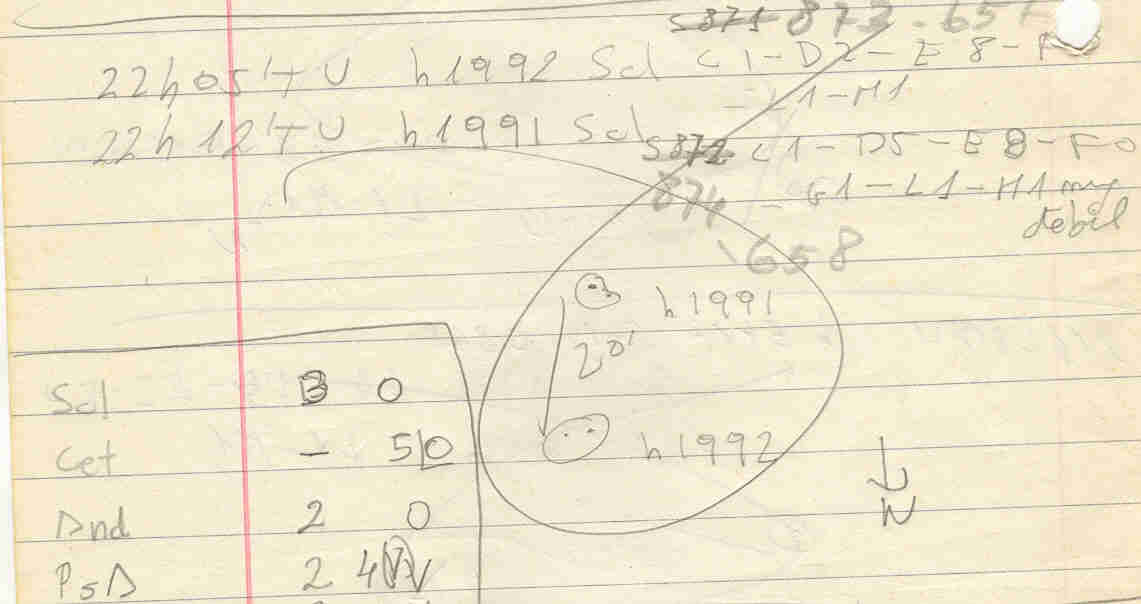 873-657
22h05'TU h1992 Scl C1-D2-E8-F
-L1-H1
22h12'TU h1991 Scl C1-D5-E8-F0
874 - G1-L1-H1 muy
debil
658
h1991
20'
h1992
N
Scl 3 0
Cet - 50
And 2 0
PsA 2 4